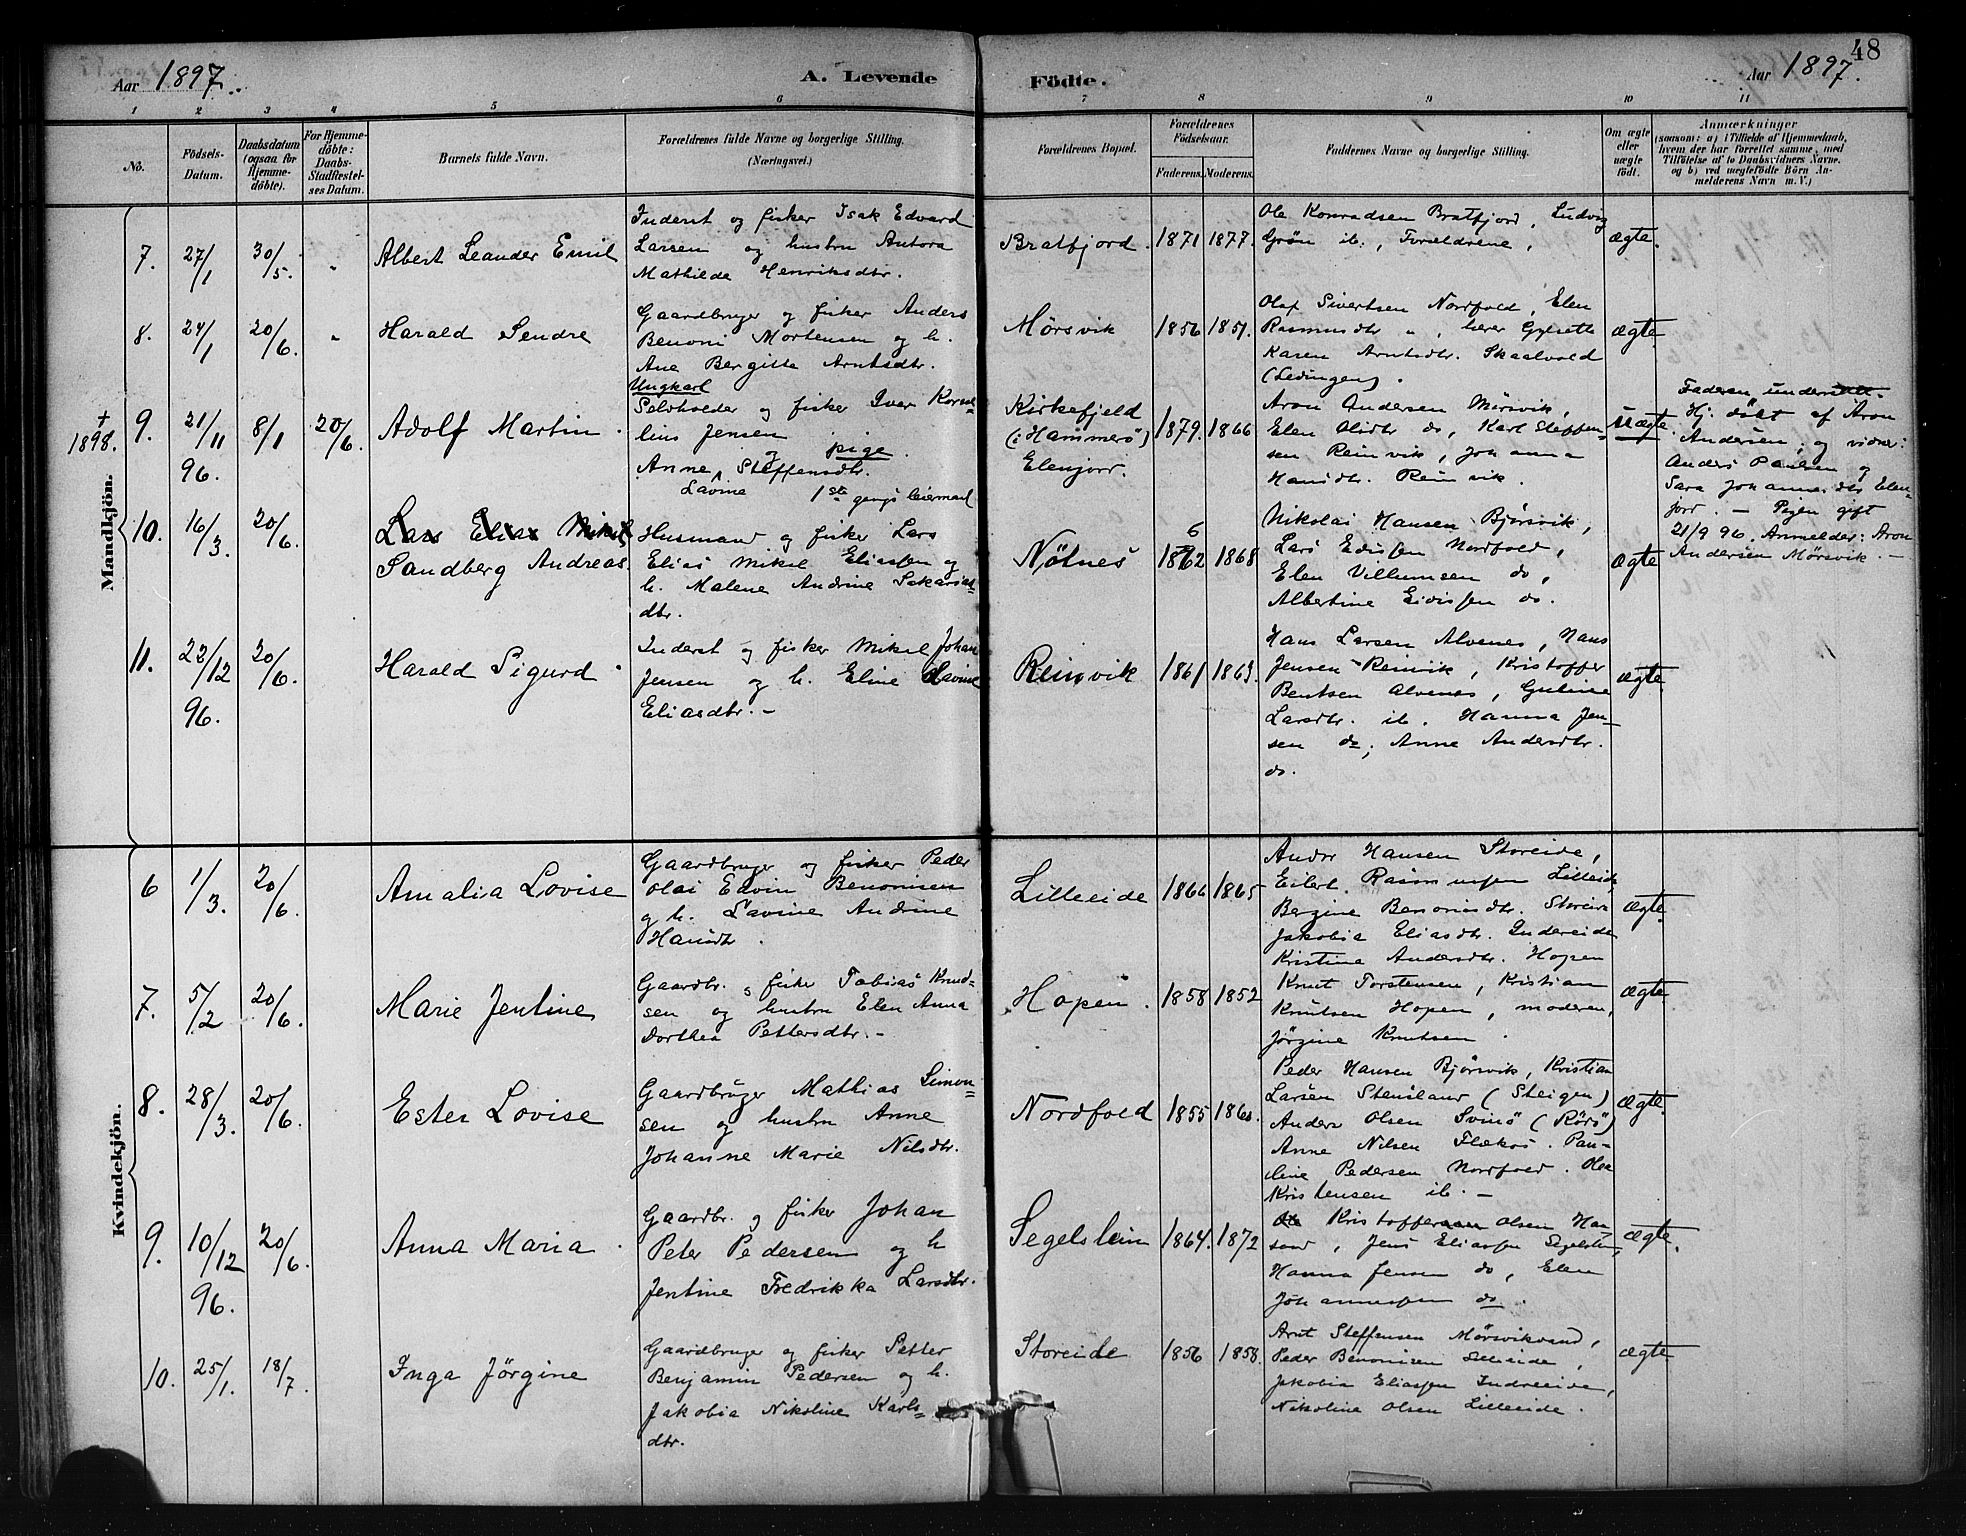 48
Aar 1897.
A. Levende
Födte.
Aar 1897.
1 2 3 4 5 6 7 8 9 10 11
No.
Födsels-
Datum.
Daabsdatum
(ogsaa for
Hjemme-
döbte).
For Hjemme-
döbte:
Daabs-
Stadfæstel-
ses Datum.
Barnets fulde Navn.
Forældrenes fulde Navne og borgerlige Stilling.
(Næringsvei.)
Forældrenes Bopæl.
Forældrenes
Födselsaar.
Faderens. Moderens.
Faddernes Navne og borgerlige Stilling.
Om ægte
eller
uægte
födt.
Anmærkninger
(saasom: a) i Tilfælde af Hjemmedaab,
hvem der har forrettet samme, med
Tilföielse af to Daabsvidners Navne.
og b) ved uægtefödte Börn An-
melderens Navn m. V.)
Mandkjön.
7.
27/1
30/5.
"
Albert Leander Emil
Inderst og fisker Isak Edvard
Larsen og hustru Antora
Mathilde Henriksdtr.
Bratfjord.
1871 1877.
Ole Konradsen Bratfjord, Ludvig
Grøn ib., Forældrene,
ægte.
8.
24/1
20/6.
"
Harald Sendre
Gaardbruger og fisker Anders
Benoni Mortensen og h.
Ane Bergitte Arntsdtr.
Mörsvik
1856 1851.
Olaf Sivertsen Nordfold, Elen
Rasmusdtr ", lærer Gylseth
Karen Arntsdtr. Skaalvold
(Lødingen).
ægte
† 1898.
9.
21/11 96.
8/1
20/6.
Adolf Martin.
Ungkarl
Selvholder og fisker Iver Korne-
lius Jensen og pige.
Anne Steffensdtr.
Lavine 1ste gangs leiermaal
Kirkefjeld
(i Hammerö)
Elenjord.
1879. 1866
Aron Andersen Mörsvik,
Elen Olsdtr do, Karl Steffen-
sen Reinvik, Johanna
Hansdtr. Reinvik.
uægte.
Faderen under
Hj. döbt af Aron
Andersen, og vidner:
Anders Paulsen og
Sara Johannesdtr Elen-
jord. — Pigen gift
21/9 96. Anmelder: Aron
Andersen Mørsvik. —
10.
16/3.
20/6.
Lars Elias Mikal
Sandberg Andreas
Husmand og fisker Lars
Elias Mikel Eliassen og
h. Malene Andrine Sakarias-
dtr.
Nötnes
6
1872 1868
Nikolai Hansen Björsvik,
Lars Edissen Nordfold,
Elen Villumsen do,
Albertine Eidissen do.
ægte
11.
22/12 96.
20/6.
Harald Sigurd.
Inderst og fisker Mikal Johan
Jensen og h. Eline Lavine
Eliasdtr. —
Reinvik
1861 1863.
Hans Larsen Alvenes, Hans
Jensen Reinvik, Kristoffer
Bentsen Alvenes, Guline
Larsdtr. ib. Hanna Jen-
sen do, Anne Andersdtr.
do.
ægte.
Kvindekjön.
6
1/3.
20/6.
Amalia Lovise
Gaardbruger og fisker Peder
Olai Edvin Benonisen
og h. Lavine Andrine
Hansdtr.
Lilleeide
1866 1865
Andor Hansen Storeide,
Eilert Rasmussen Lilleeide
Bergine Benonisdtr. Storeide
Jakobia Eliasdtr. Indreeide
Kristine Andersdtr. Hopen
ægte.
7.
5/2
20/6.
Marie Jentine
Gaardbr. og fisker Tobias Knud-
sen og hustru Elen Anna
Dorthea Pettersdtr. —
Hopen.
1858 1852
Knut Torstensen, Kristian
Knutsen Hopen, moderen,
Jörgine Knutsen.
ægte.
8.
28/3.
20/6.
Ester Lovise.
Gaardbruger Mathias Simon-
sen og hustru Anne
Johanne Marie Nilsdtr.
Nordfold
1855 1860.
Peder Hansen Björsvik, Kristian
Larsen Stensland (Steigen)
Anders Olsen Svinö (Rörö)
Anne Nilsen Flækøs. Pau-
line Pedersen Nordfold. Olea
Kristensen ib. —
ægte.
9.
10/12 96.
20/6.
Anna Maria.
Gaardbr. og fisker Johan
Peter Pedersen og h
Jentine Fredrikka Larsdtr.
Segelstein
1864. 1872
Kristoffer Olsen Han-
sand, Jens Eliassen Segelstein,
Hanna Jensen do, Elen
Johannessen do.
ægte.
10.
25/1.
18/7
Inga Jörgine
Gaardbruger og fisker Petter
Benjamin Pedersen og h.
Jakobia Nikoline Karls-
dtr.
Storeide
1856 1858.
Arnt Steffensen Mørsvikvand,
Peder Benonisen Lilleeide,
Jakobia Eliassen Indreeide,
Nikoline Olsen Lilleeide.
ægte